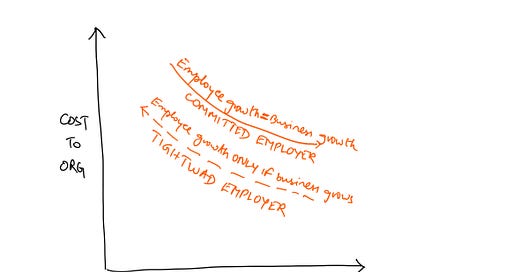 Employee growth=Business growth
COMMITTED EMPLOYER
Employee growth only if business grows
TIGHTWAD EMPLOYER
COST
TO
ORG